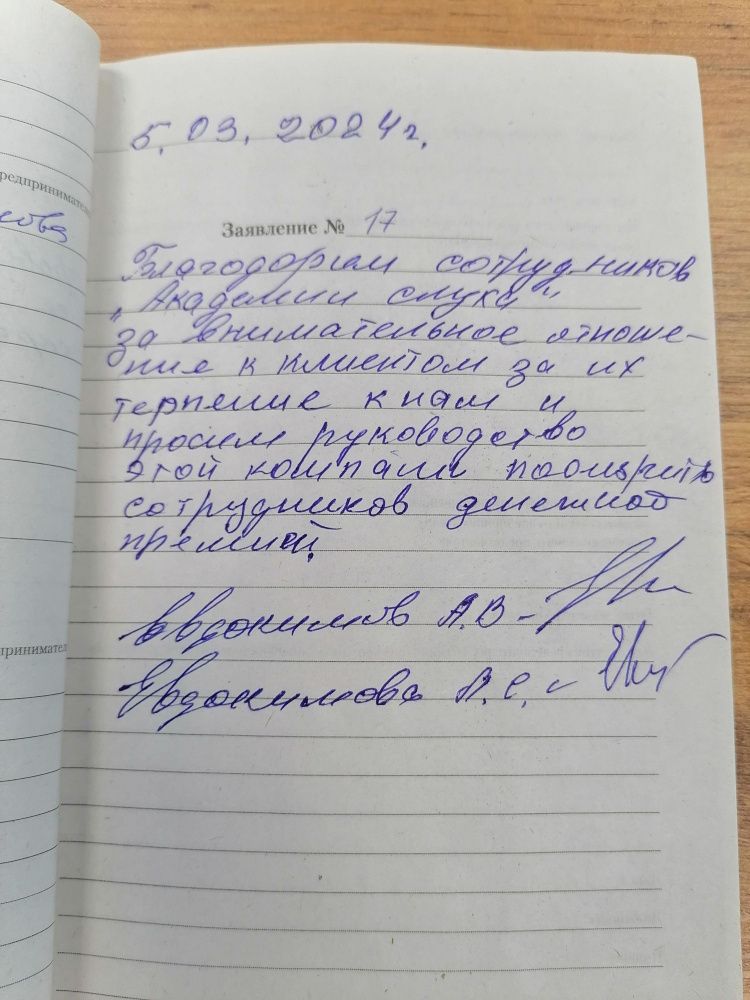 5.03.2024г.
редпринимател
Заявление № 17
Благодорим сотрудников
„Академии слуха"
за внимательное отноше-
ние к клиентом за их
терпение к нам и
просим руководство
этой компами поощрить
сотрудников денежной
премией.
Евдокимов А.В -
Евдокимова А.С. -
принимател